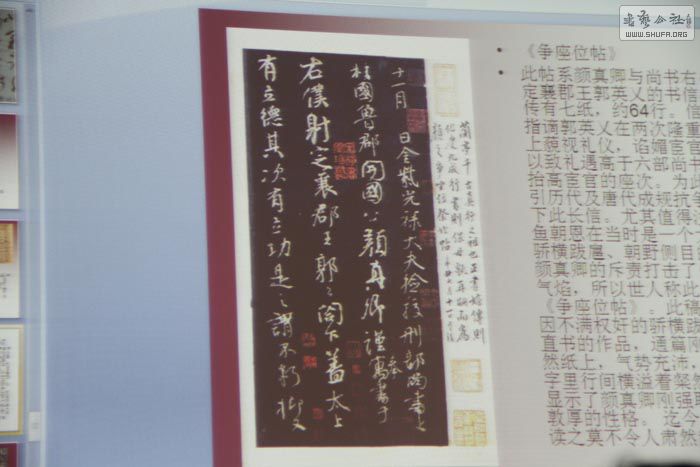 书艺公社
WWW.SHUFA.ORG
十一月 日金紫光祿大夫檢校刑部尚書上
柱國魯郡開國公顏真卿謹奉寓書于
右僕射定襄郡王郭公閤下蓋太上
有立德其次有立功是之謂不朽抑又
《争座位帖》
此帖系颜真卿与尚书本
定襄郡王郭英乂的书信
传有七纸，约64行。
指谪郭英乂在两次隆
上藐视礼仪，谄媚宦官
以致礼遇高于六部尚
抬高宦官的座次。为
引历代及唐代成规抗
下此长信。尤其值得
鱼朝恩在当时是一个
骄横跋扈、朝野侧目
颜真卿的斥责打击了
气焰，所以世人称此
《争座位帖》。此帖
因不满权奸的骄横跋
直书的作品，通篇刚
然纸上，气势充沛，
字里行间横溢着粲
显示了颜真卿刚强
敦厚的性格。迄今
读之莫不令人肃然